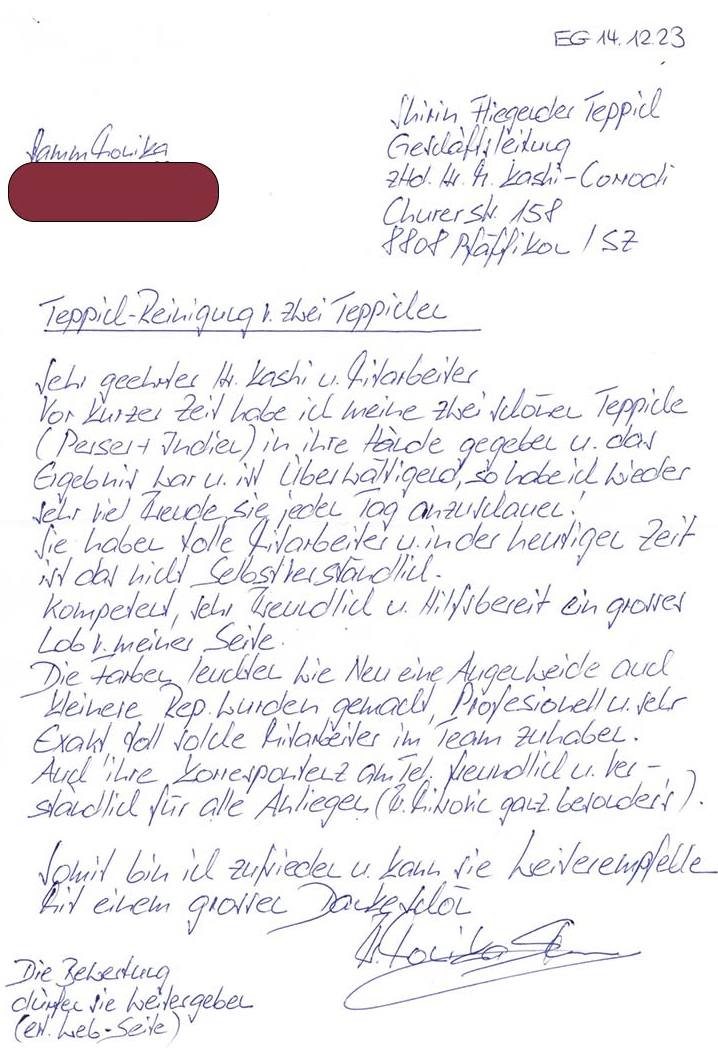 EG 14.12.23
Monika
Shirin Fliegender Teppich
Geschäftsleitung
zHd. Hr. M. Kashi-Comodi
Churerstr. 158
8808 Pfäffikon / SZ
Teppich-Reinigung v. zwei Teppichen
Sehr geehrter Hr. Kashi u. Mitarbeiter
Vor kurzer Zeit habe ich meine zwei schönen Teppiche
(Perser + Indien) in ihre Hände gegeben u. das
Ergebnis war u. ist Überwältigend, so habe ich wieder
sehr viel Freude sie jeden Tag anzuschauen!
Sie haben tolle Mitarbeiter u. in der heutigen Zeit
ist das nicht Selbstverständlich.
Kompetent, sehr Freundlich u. Hilfsbereit ein grosses
Lob v. meiner Seite.
Die Farben leuchten wie Neu eine Augenweide auch
kleinere Rep. wurden gemacht, Profesionell u. sehr
Exakt, toll solche Mitarbeiter im Team zuhaben.
Auch ihre Korrespontenz am Tel. freundlich u. ver-
ständlich für alle Anliegen (ganz besonders).
Somit bin ich zufrieden u. kann sie weiterempfelle
Mit einem grossen Dankeschön
Die Bewertung
dürfen sie weitergeben
(evt. Web-Seite)